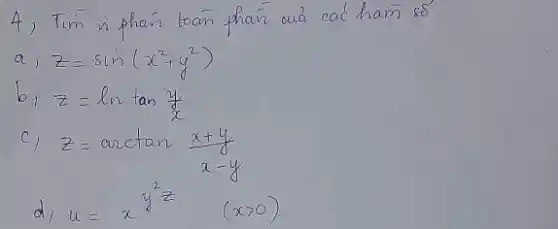 4, Tìm vi phân toàn phần của các hàm số
a, z = sin (x² + y²)
b, z = ln tan y/x
c, z = arctan (x+y)/(x-y)
d, u = x^(y²z) (x>0)